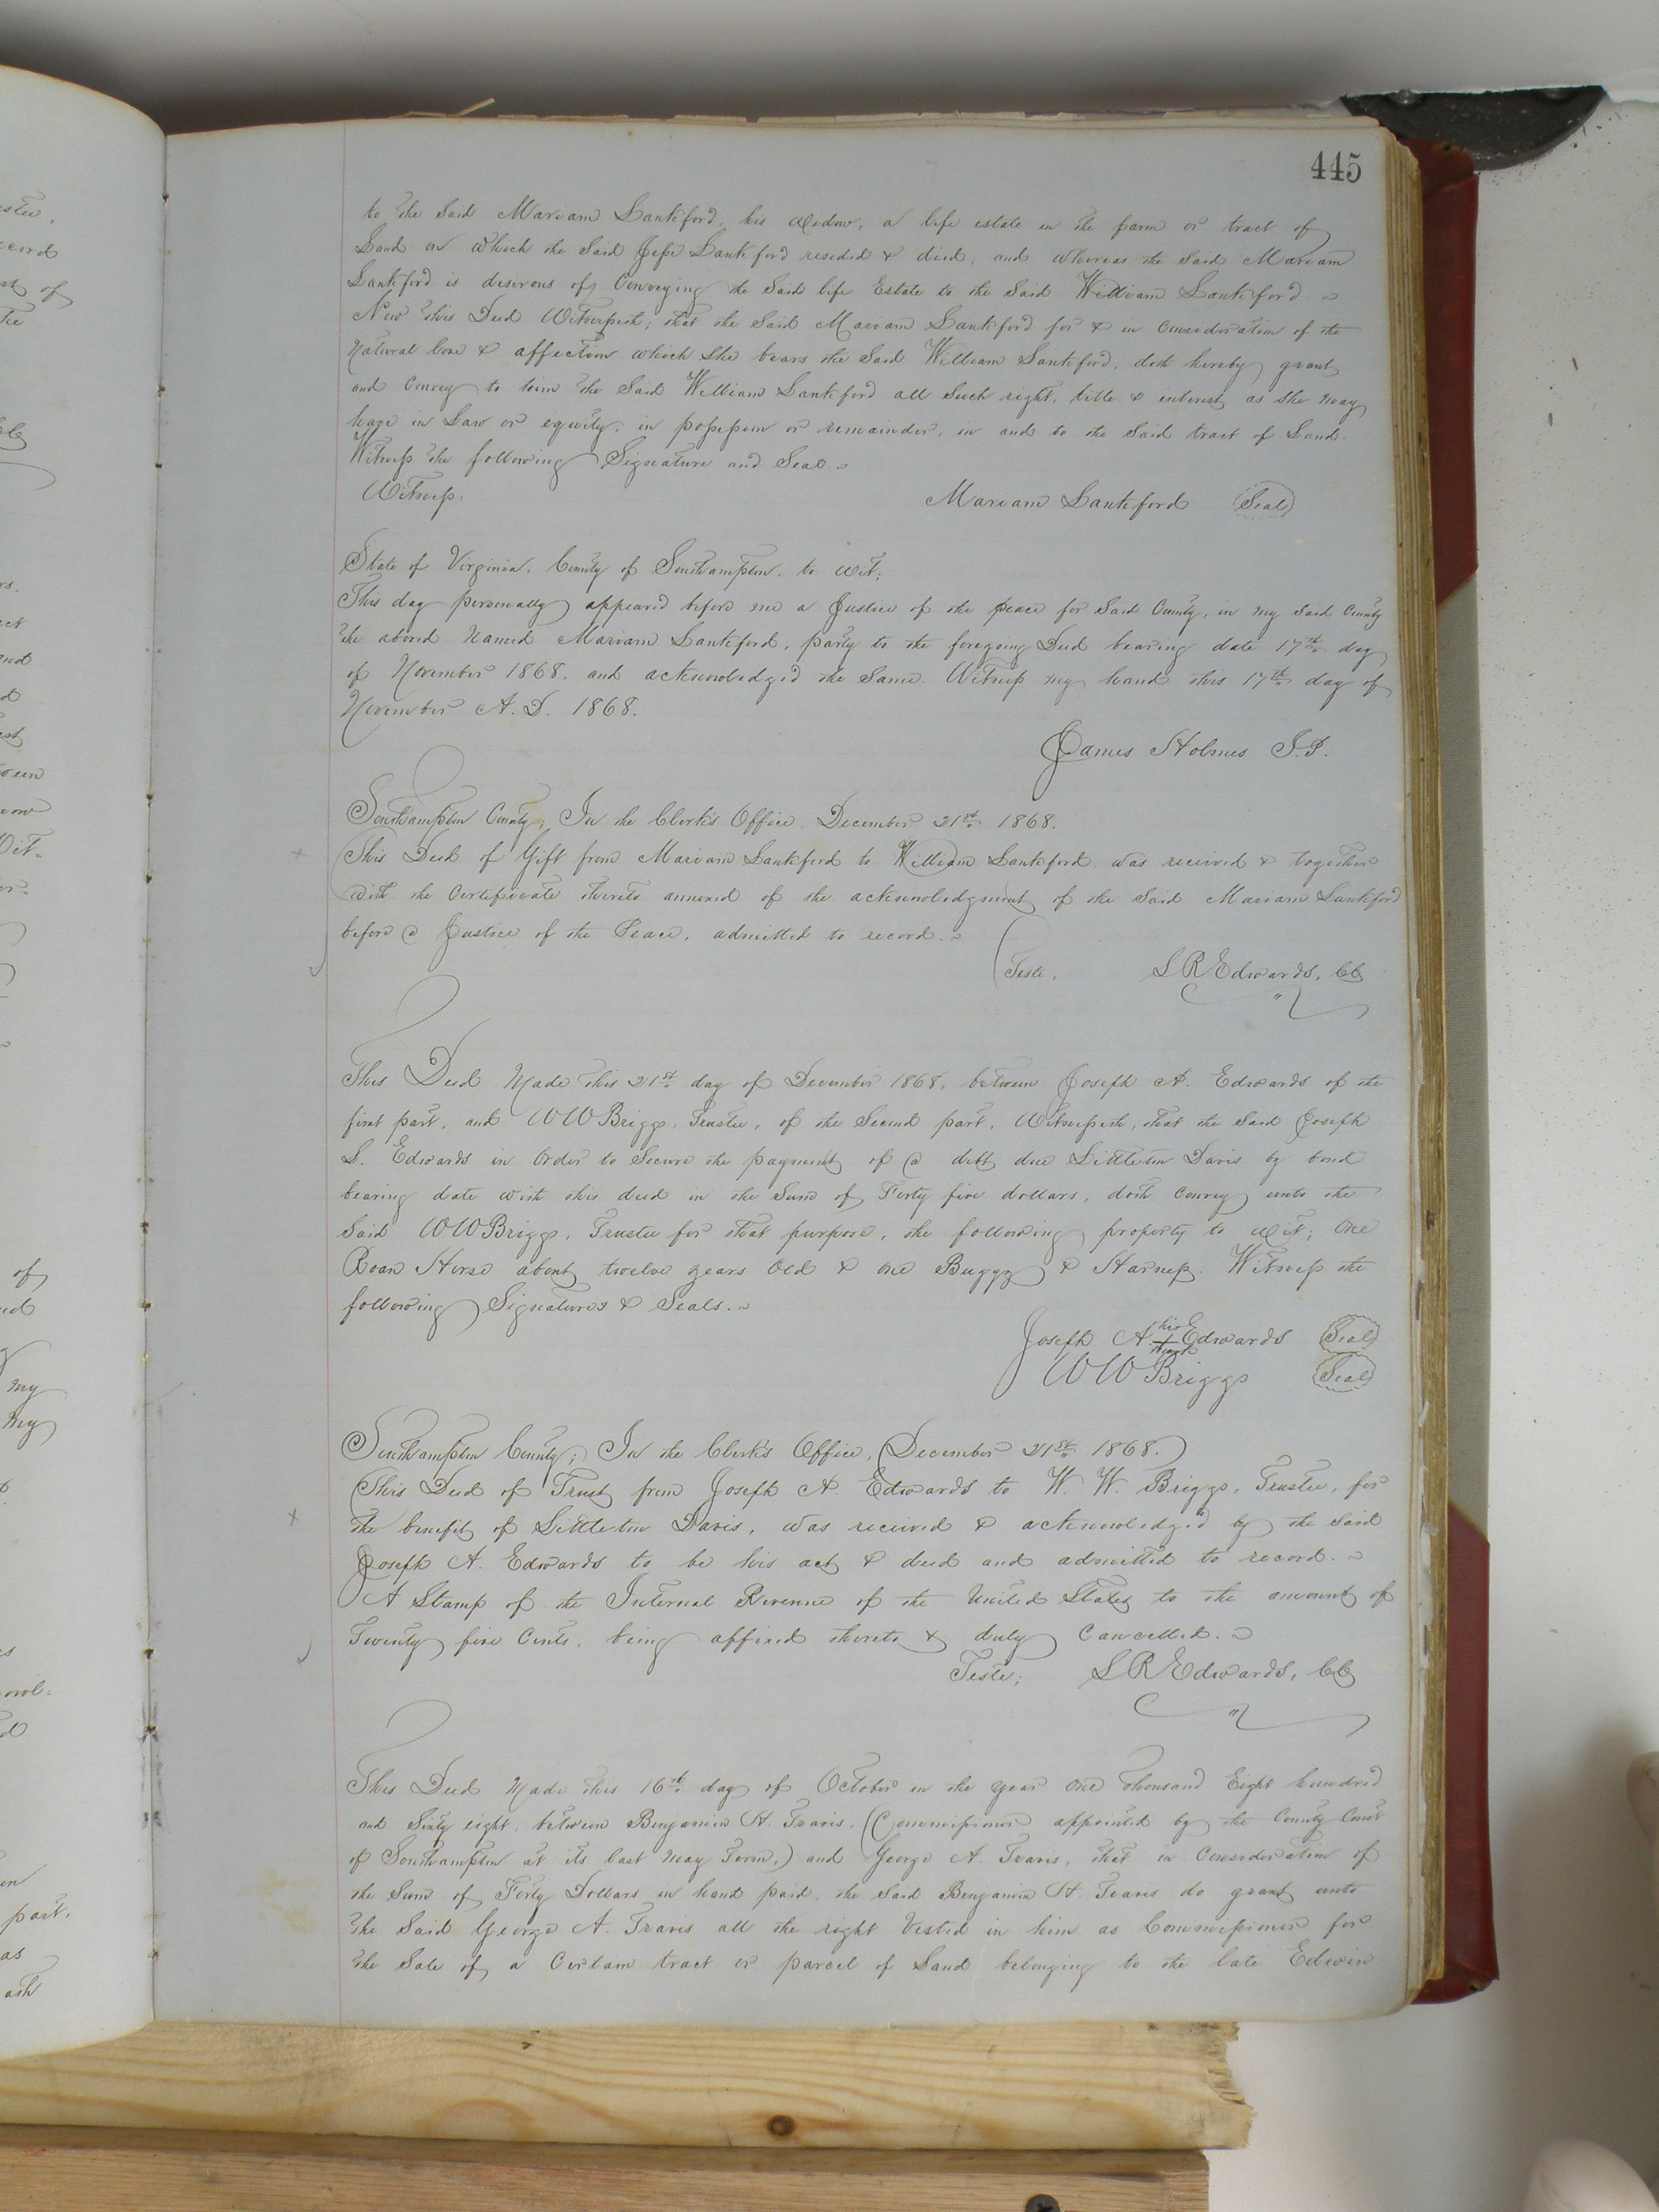 445
to the said Mariam Lankford, his widow, a life estate in the farm or tract of
Land on which the said Jesse Lankford resided & died, and whereas the said Mariam
Lankford is desirous of Conveying the said life Estate to the said William Lankford.
Now this Deed Witnesseth; that the said Mariam Lankford for & in Consideration of the
Natural love & affection which she bears the said William Lankford, doth hereby grant
and Convey to him the said William Lankford all such right, title & interest as she may
have in Law or equity, in possession or remainder, in and to the said tract of Land.
Witness the following Signature and Seal.
Witness: Mariam Lankford (Seal)
State of Virginia, County of Southampton, to wit;
This day personally appeared before me a Justice of the peace for said County, in my said County
the above named Mariam Lankford, party to the foregoing Deed bearing date 17th day
of November 1868, and acknowledged the same. Witness my hand this 17th day of
November A.D. 1868.
James Holmes J.P.
Southampton County; In the Clerk's Office, December 21st 1868.
This Deed of Gift from Mariam Lankford to William Lankford, was received & together
with the Certificate thereto annexed of the acknowledgment of the said Mariam Lankford
before a Justice of the Peace, admitted to record.
Teste, L R Edwards, CC
This Deed Made this 21st day of December 1868, between Joseph A. Edwards of the
first part, and W W Briggs, Trustee, of the second part, Witnesseth, that the said Joseph
S. Edwards in order to secure the payment of a debt due Littleton Davis by bond
bearing date with this deed in the sum of Forty five dollars, doth convey unto the
said W W Briggs, Trustee for that purpose, the following property to wit; One
Roan Horse about twelve years old & one Buggy & Harness. Witness the
following Signatures & Seals.
Joseph A. his + mark Edwards (Seal)
W W Briggs (Seal)
Southampton County; In the Clerk's Office, December 21st 1868.
This Deed of Trust from Joseph A. Edwards to W. W. Briggs, Trustee, for
the benefit of Littleton Davis, was received & acknowledged by the said
Joseph A. Edwards to be his act & deed and admitted to record.
A Stamp of the Internal Revenue of the United States to the amount of
Twenty five Cents, being affixed thereto & duly Cancelled.
Teste; L R Edwards, CC
This Deed Made this 16th day of October in the year One Thousand Eight hundred
and Sixty eight, between Benjamin H. Travis, (Commissioner appointed by the County Court
of Southampton at its last May Term,) and George A. Travis, that in Consideration of
the Sum of Forty Dollars in hand paid, the said Benjamin H. Travis do grant unto
the said George A. Travis all the right Vested in him as Commissioner for
the Sale of a Certain tract or parcel of Land belonging to the late Edwin